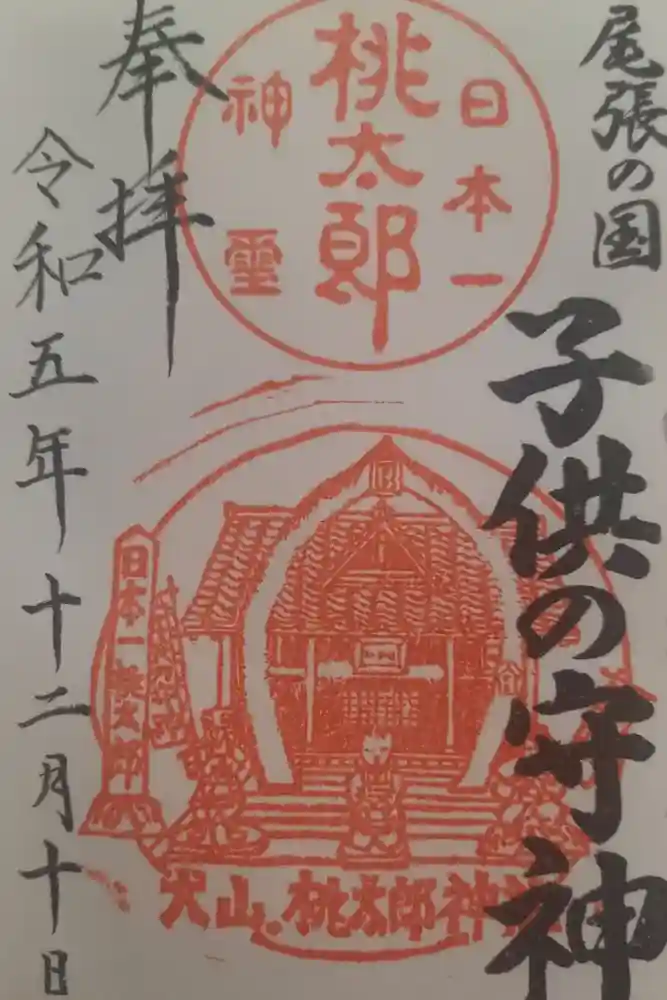 尾張の国
子供の守神
日本一
桃太郎
神霊
日本一桃太郎
犬山.桃太郎神社
奉拝
令和五年十二月十日